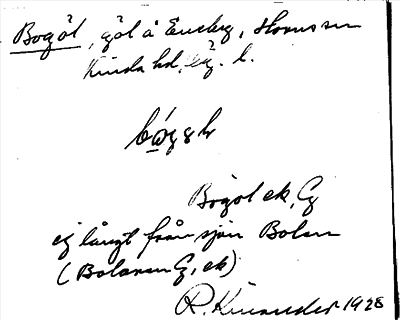 Bogöl, göl å Eneby, Horns sn
Kinda hd, Ög. l.
Bogöl ek, G
ej långt från sjön Bolan
(Bolaren G, ek)
R. Kinander 1928